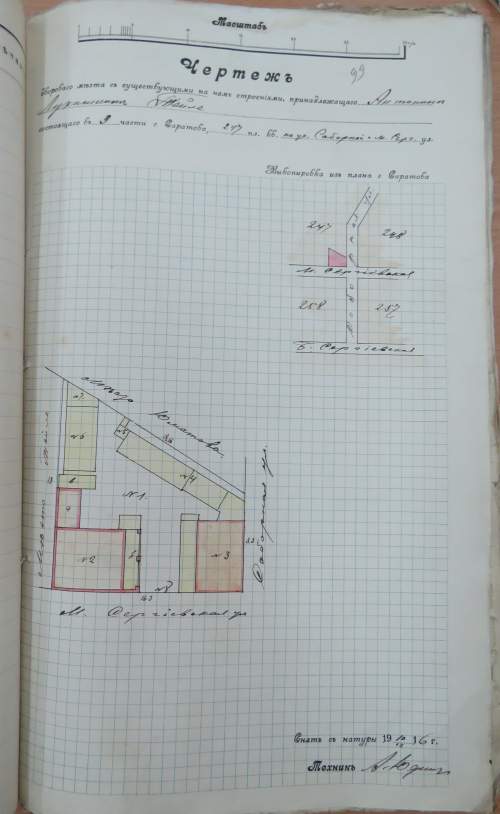 Масштабъ
Чертежъ
99
Дворового мѣста съ существующими на немъ строеніями, принадлежащаго Антонины
Лукинишны
состоящаго въ 2 части г. Саратова, 247 пл. кв. на уг. Соборной и М. Серг. ул.
Выкопировка изъ плана г. Саратова
247
248
М. Сергіевская
258
257
Б. Сергіевская
Юматова
№7
№6
№5
№4
№1
№2
№3
№8
Соборная ул.
М. Сергіевская ул
Снятъ съ натуры 19 10/IV 16 г.
Техникъ